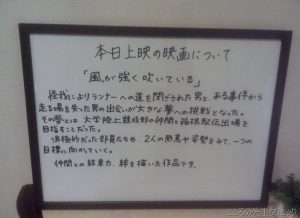 本日上映の映画について
「風が強く吹いている」
怪我によりランナーへの道を閉ざされた男と、ある事件から
走る場を失った男の出会いが大きな夢への挑戦となった。
その夢とは、大学陸上競技部の仲間と箱根駅伝出場を
目指すことだった。
消極的だった部員たちも、2人の熱意や姿勢をみて、一つの
目標に向かしていく。
仲間との結束力、絆を描いた作品です。